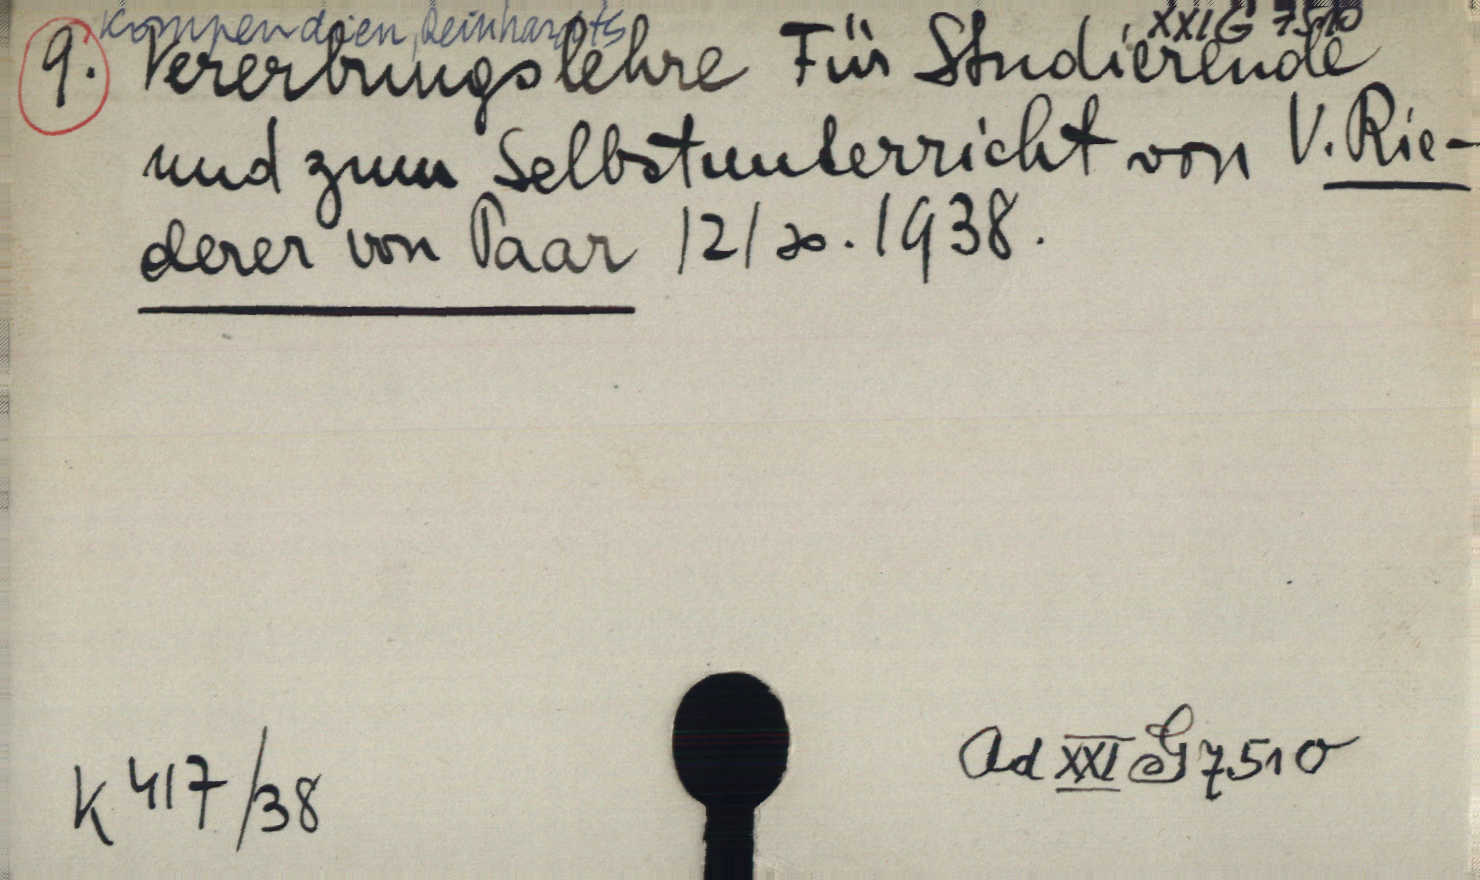 Kompendien, Reinhardts XXI G 7510
9. Vererbungslehre Für Studierende
und zum Selbstunterricht von V. Rie-
derer von Paar 12/20. 1938.
K 417/38
Ad XXI G 7510